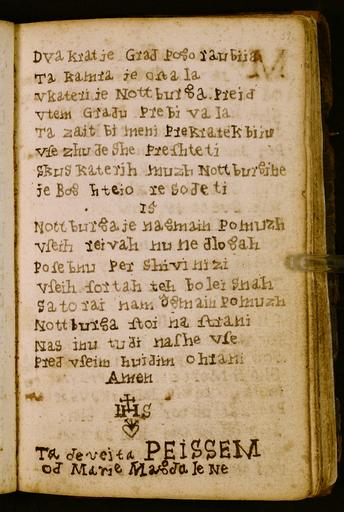 Dvakrat je Grad pogorau bija
Ta kamra je ostala
vkateri je Nottburga Preid
vtem Gradu Prebivala
Ta zait bi meni Prekratek biu
vse zhudeshe Preshteti
skus katerih muzh Nottburgihe
je Bog hteio resodeti
IS
Nottburga je nagmain Pomuzh
vseih reivah nu nedlogah
Posebnu Per Shivinizi
vseih sortah teh boleisnah
Satorai nam dgmain Pomuzh
Nottburga stoi na strani
Nas inu tudi nashe vse
Pred vseim hudim ohrani
Amen
IHS
Ta deveita PEISSEM
od Marie Magdalene